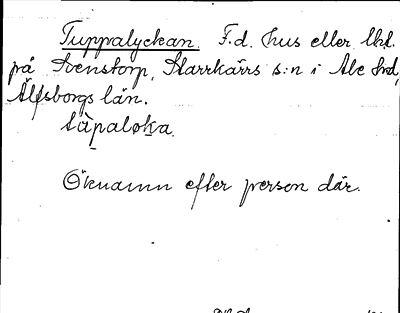 Tuppalyckan. F.d. hus eller lht.
på Svenstorp, Starrkärrs s:n i Ale hrd,
Älfsborgs län.
Öknamn efter person där.